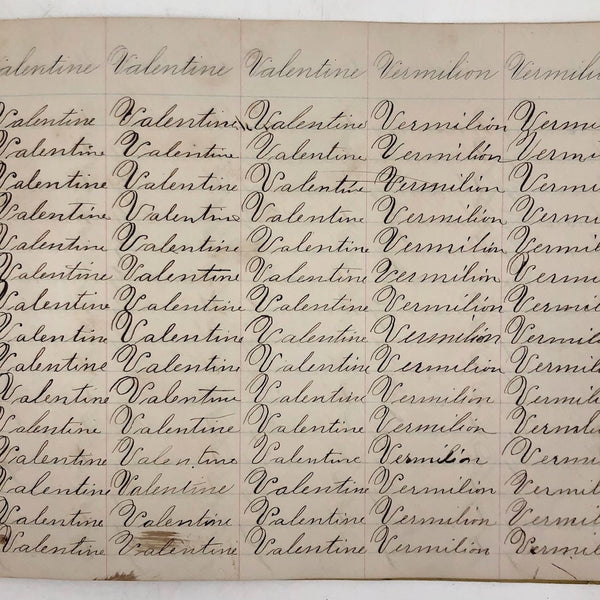 Valentine Valentine Valentine Vermilion Vermili
Valentine Valentine Valentine Vermilion Vermi
Valentine Valentine Valentine Vermilion Vermi
Valentine Valentine Valentine Vermilion Vermi
Valentine Valentine Valentine Vermilion Vermi
Valentine Valentine Valentine Vermilion Vermi
Valentine Valentine Valentine Vermilion Vermi
Valentine Valentine Valentine Vermilion Vermili
Valentine Valentine Valentine Vermilion Vermil
Valentine Valentine Valentine Vermilion Vermil
Valentine Valentine Valentine Vermilion Vermili
Valentine Valentine Valentine Vermilion Vermil
Valentine Valentine Valentine Vermilion Vermi
Valentine Valentine Valentine Vermilion Vermil
Valentine Valentine Valentine Vermilion Vermil
Valentine Valentine Valentine Vermilion Vermil